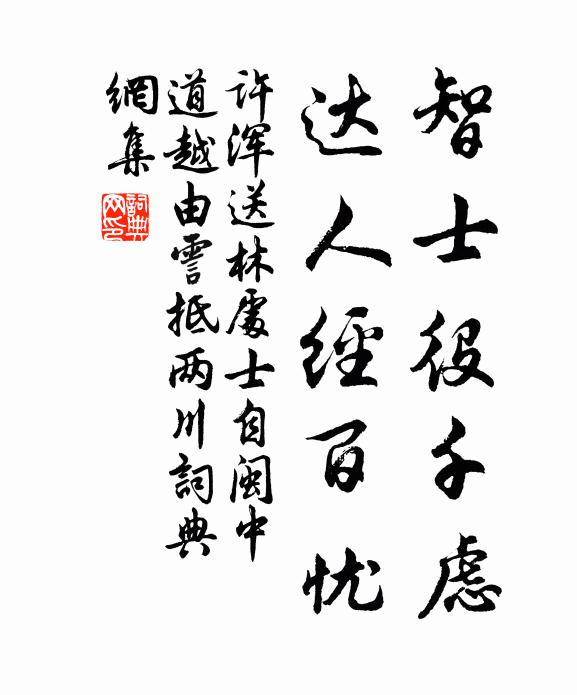 智士役千虑
达人经百忧
许浑送林處士自闽中
道越由霅抵两川詞典
網集
詞典网印